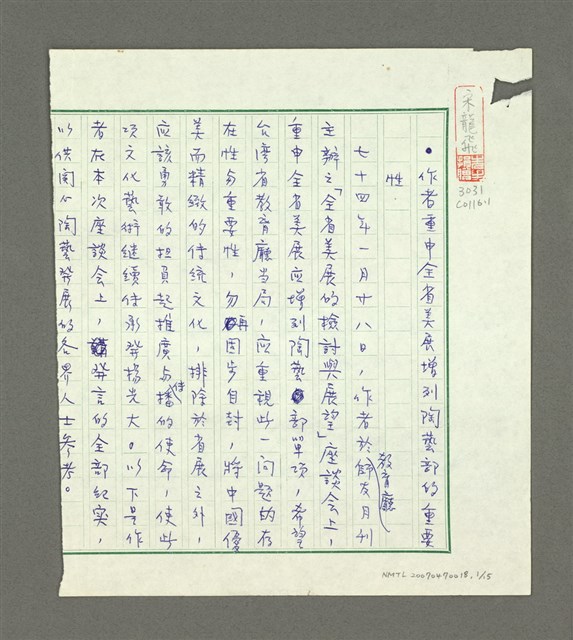 •作者重申全省美展增列陶藝部的重要
性.
七十四年一月廿八日，作者於教育廳師友月刊
主辦之「全省美展的檢討與展望」座談会上，
重申全省美展应增列陶藝部單项，希望
台湾省教育廳当局，应重視此一问題的存
在性与重要性，勿再固步自封，將中國優
美而精緻的传統文化，排除於省展之外，
应該勇敢的担負起推廣与传播的使命，使此
项文化藝術継續传承發揚光大。以下是作
者在本次座談会上，發言的全部紀实，
以供関心陶藝發展的各界人士參考。
宋龍飛
3031
C0116-1
NMTL 20070470018, 1/15